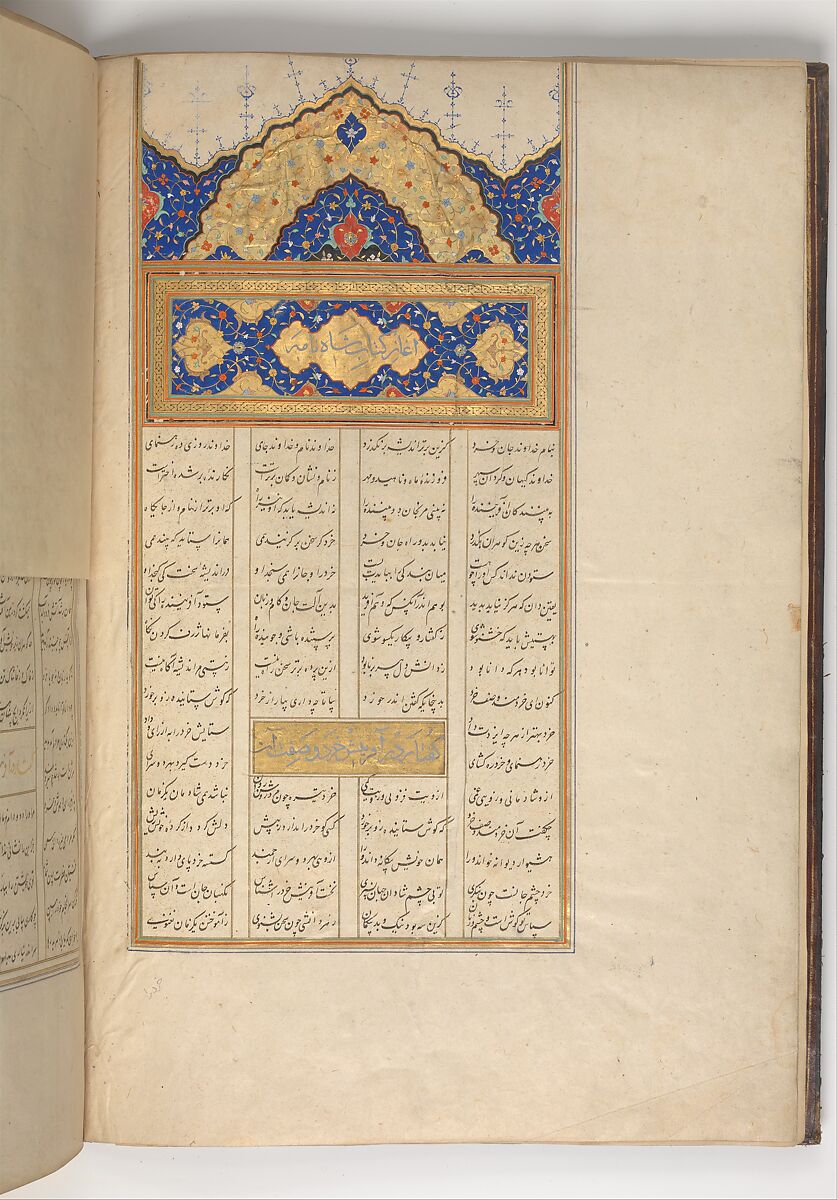 آغاز کتاب شاه نامه
بنام خداوند جان و خرد کزین برتر اندیشه برنگذرد خداوند نام و خداوند جای خداوند روزی ده رهنمای
خداوند کیهان و گردان سپهر فروزنده ماه و ناهید و مهر ز نام و نشان و گمان برترست نگارنده برشده اخترست
به بینندگان آفریننده را نه بینی مرنجان دو بیننده را نه اندیشه یابد که او برتر از نام و از جایگاه
سخن هرچه زین گوهران بگذرد نیابد بدو راه جان و خرد خرد گر سخن برگزیند همی همانرا ستاید که بیند همی
ستودن نداند کس او را چو هست میان بندگی را ببایدت بست خرد را و جانرا همی سنجد او در اندیشه سخته کی گنجد او
یقین دان که هرگز نیاید پدید بوهم اندر آنکس که وهم آفرید بدین آلت و جان و کام و زبان ستود آفریننده را کی توان
بهستیش باید که خستو شوی ز گفتار و پیکار یکسو شوی پرستنده باشی و جوینده راه بفرمانها ژرف کردن نگاه
توانا بود هر که دانا بود ز دانش دل پیر برنا بود ازین پرده برتر سخن گاه نیست ز هستی مر اندیشه راه نیست
کنون ای خردمند وصف خرد بدین جایگه گفتن اندر خورد بیا تا چه داری بیار از خرد که گوش ستاینده زو برخورد
خرد بهتر از هرچه ایزدت داد ستایش خرد را به از راه داد
خرد رهنمای و خرد دلگشای خرد دست گیرد بهر دو سرای
گفتار در آفرینش خرد و صفت آن
ازو شادمانی و زوئی غمی ازویت فزونی و زویت کمی خرد تیره چون مرد روشن روان نباشد همی شادمان یکزمان
چه گفت آن خردمند وصف خرد که گوش ستاینده زو برخورد کسی کو خرد را ندارد ز پیش دلش گردد از کرده خویش ریش
هشیوار دیوانه خواند ورا همان خویش بیگانه داند ورا ازوئی بهر دو سرای ارجمند گسسته خرد پای دارد ببند
خرد چشم جانست چون بنگری تو بی چشم شادان جهان نسپری نخست آفرینش خرد را شناس نگهبان جان است و آن سپاس
سپاس تو گوش است و چشم و زبان کزین سه بود نیک و بد بیگمان ز هر دانشی چون سخن بشنوی ز آموختن یکزمان نغنوی